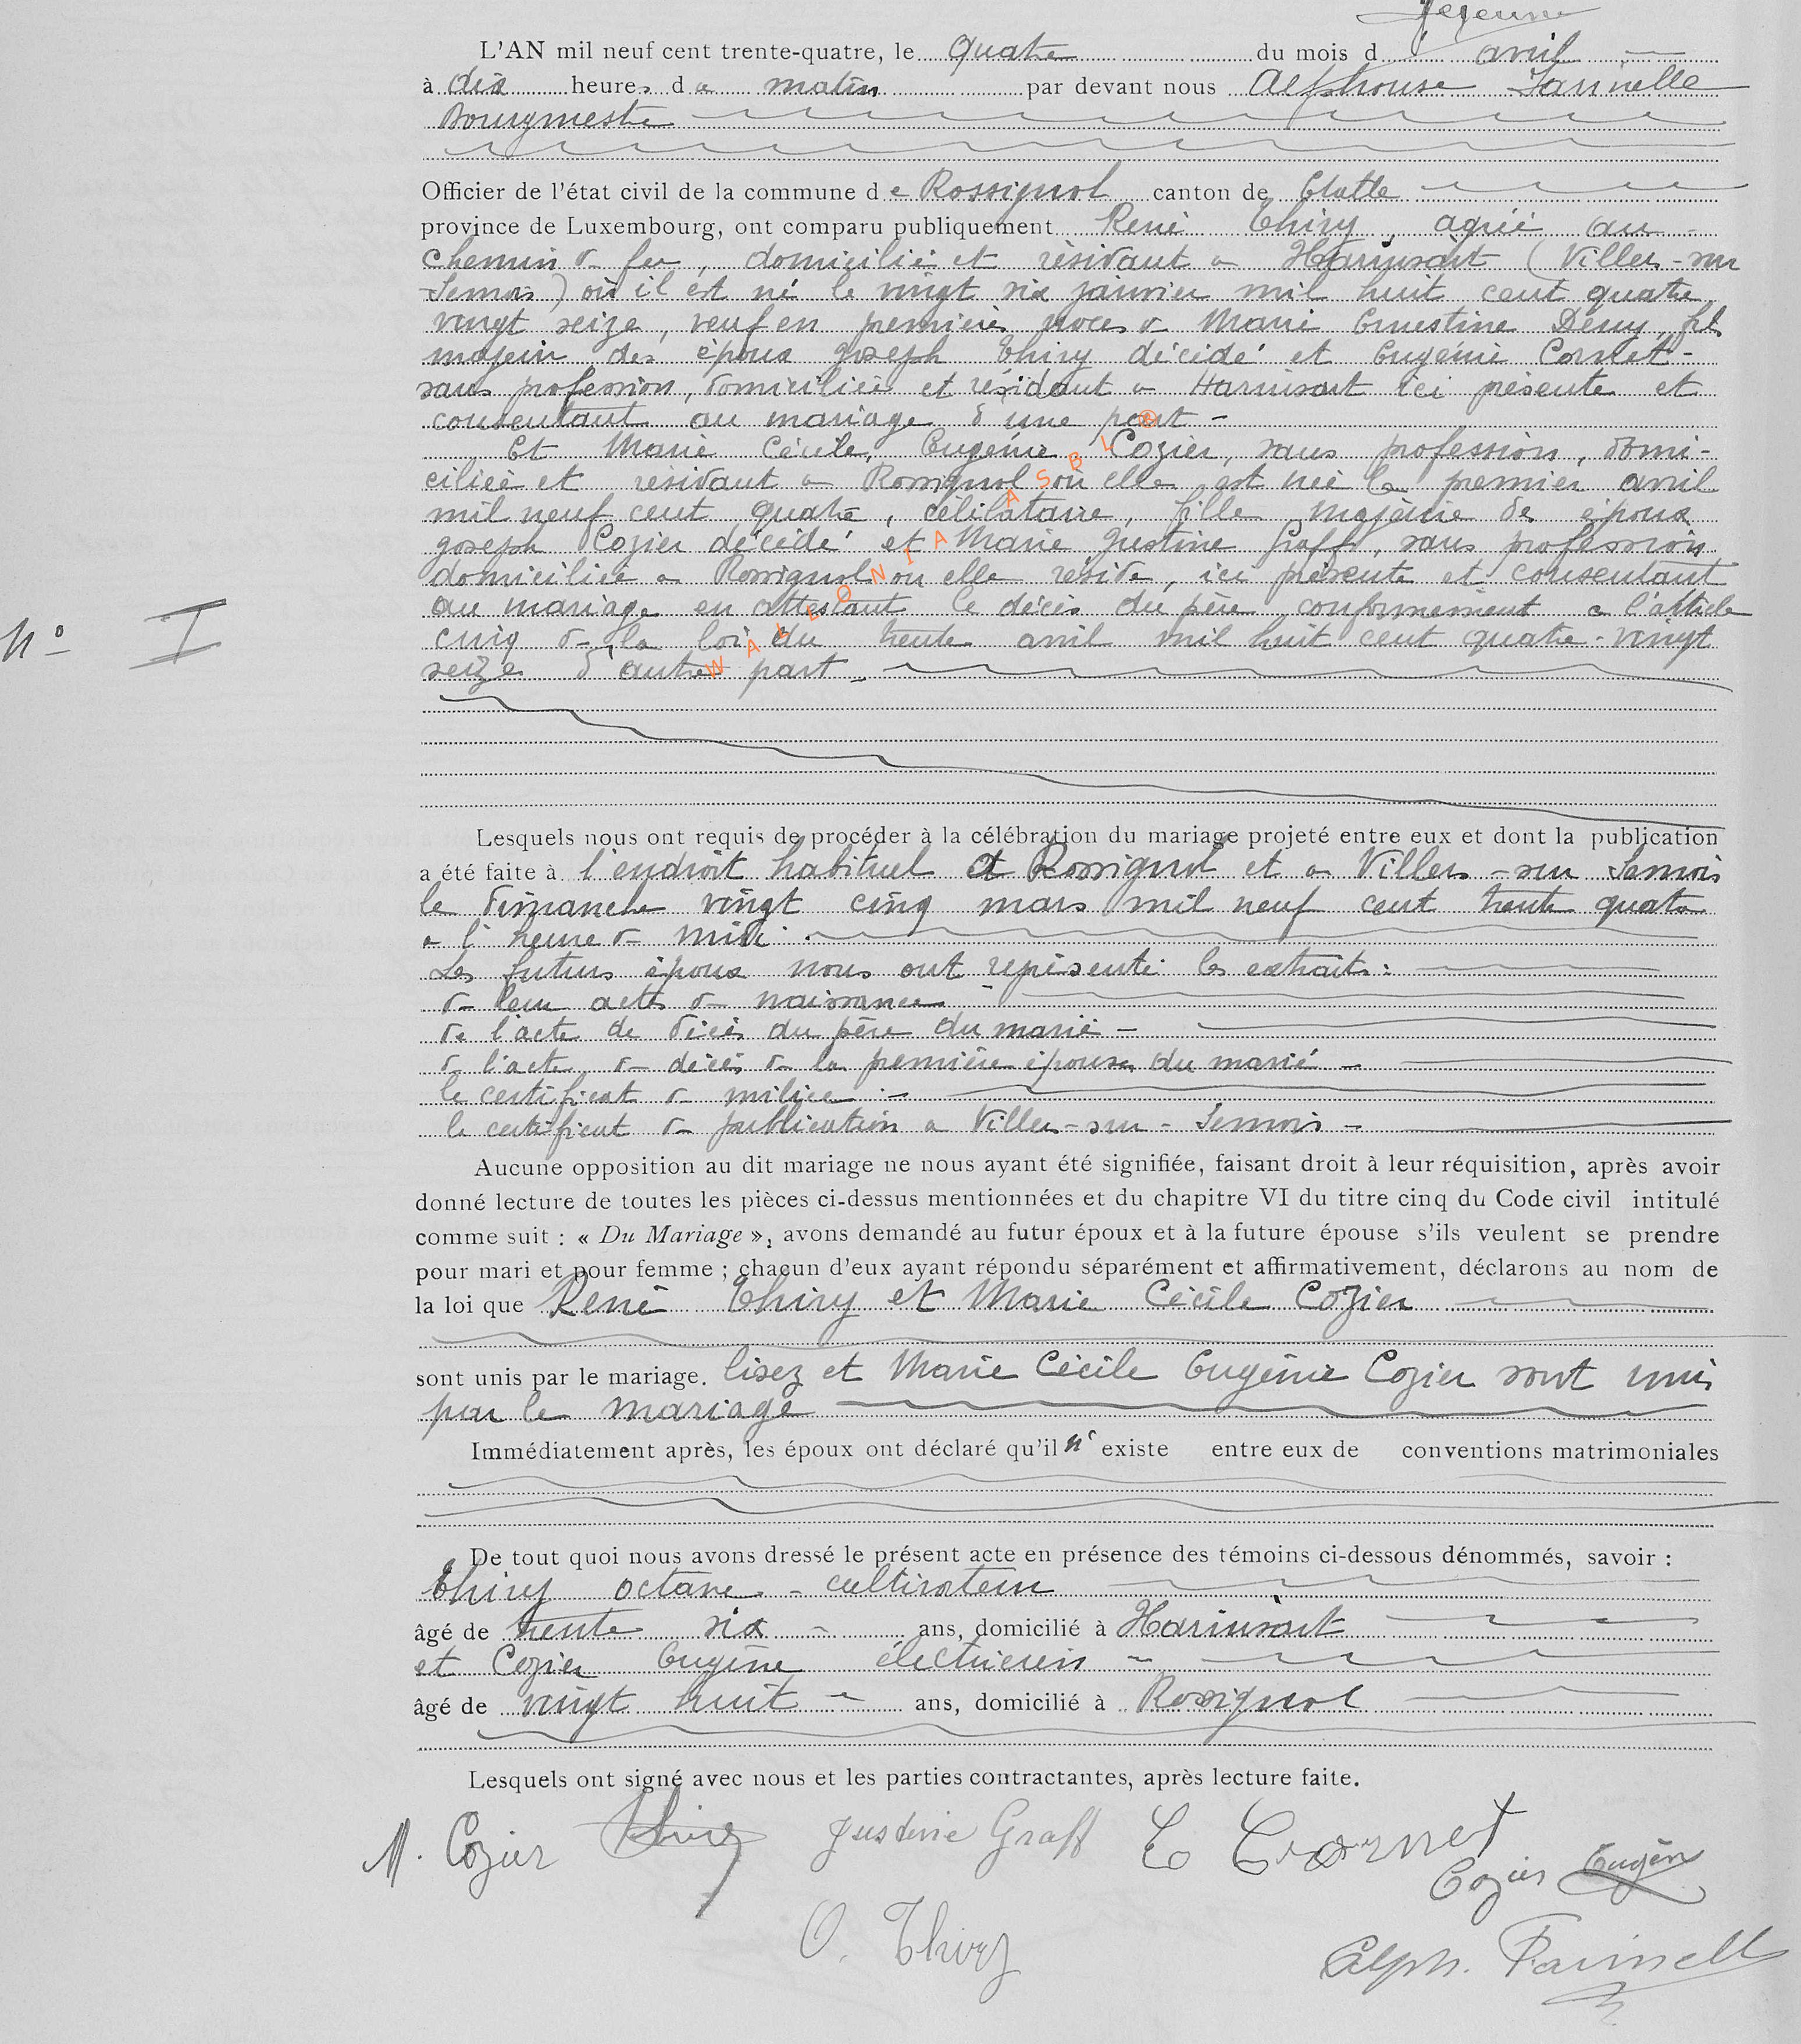 L'AN mil neuf cent trente-quatre, le quatre du mois d' avril
à dix heures du matin par devant nous Alphonse
Bourgmestre
Officier de l'état civil de la commune de Rossignol canton de Etalle
province de Luxembourg, ont comparu publiquement René Thiry, agréé au
chemin de fer, domicilié et résidant à Harinsart (Villers-sur
Semois) où il est né le vingt six janvier mil huit cent quatre
vingt seize, veuf en premières noces de Marie Ernestine Demy, fils
majeur des époux Joseph Thiry décédé et Eugénie Cornet -
sans profession, domiciliée et résidant à Harinsart ici présente et
consentant au mariage d'une part -
Et Marie Cécile, Eugénie Cozier, sans profession, domi-
ciliée et résidant à Rossignol où elle est née le premier avril
mil neuf cent quatre, célibataire, fille majeure des époux
Joseph Cozier décédé et Marie Justine Graff, sans profession
domiciliée à Rossignol où elle réside, ici présente et consentant
au mariage en attestant le décès du père conformément à l'article
N° I
cinq de la loi du trente avril mil huit cent quatre-vingt
seize d'autre part -
WALLONIA ASBL ©
Lesquels nous ont requis de procéder à la célébration du mariage projeté entre eux et dont la publication
a été faite à l'endroit habituel à Rossignol et à Villers-sur Semois
le dimanche vingt cinq mars mil neuf cent trente quatre
à l'heure de midi.
Les futurs époux nous ont représenté les extraits :
de leur acte de naissance -
de l'acte de décès du père du marié -
de l'acte de décès de la première épouse du marié -
le certificat de milice -
le certificat de publication à Villers-sur-Semois -
Aucune opposition au dit mariage ne nous ayant été signifiée, faisant droit à leur réquisition, après avoir
donné lecture de toutes les pièces ci-dessus mentionnées et du chapitre VI du titre cinq du Code civil intitulé
comme suit : « Du Mariage », avons demandé au futur époux et à la future épouse s'ils veulent se prendre
pour mari et pour femme ; chacun d'eux ayant répondu séparément et affirmativement, déclarons au nom de
la loi que René Thiry et Marie Cécile Cozier
sont unis par le mariage. lisez et Marie Cécile Eugénie Cozier sont unis
par le mariage
Immédiatement après, les époux ont déclaré qu'il n' existe entre eux de conventions matrimoniales
De tout quoi nous avons dressé le présent acte en présence des témoins ci-dessous dénommés, savoir :
Thiry Octave - cultivateur
âgé de trente six - ans, domicilié à Harinsart
et Cozier Eugène électricien -
âgé de vingt huit - ans, domicilié à Rossignol
Lesquels ont signé avec nous et les parties contractantes, après lecture faite.
M. Cozier Thiry Justine Graff E Cornet
Cozier Eugène
O. Thiry
Alph.